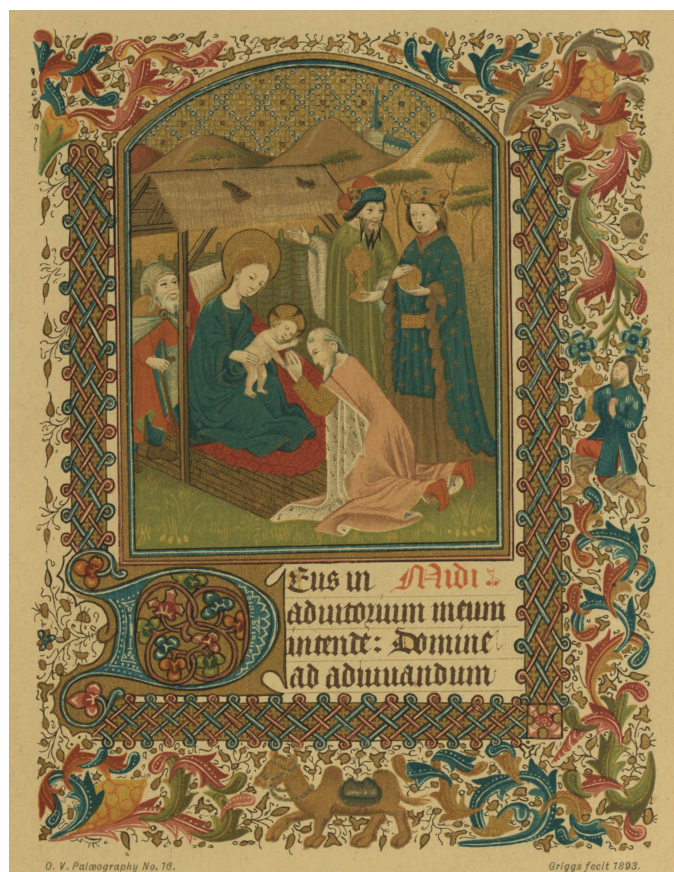 Deus in Midi :
adiutorium meum
intende: Domine
ad adiuuandum
O. V. Palæography No. 16.
Griggs fecit 1893.